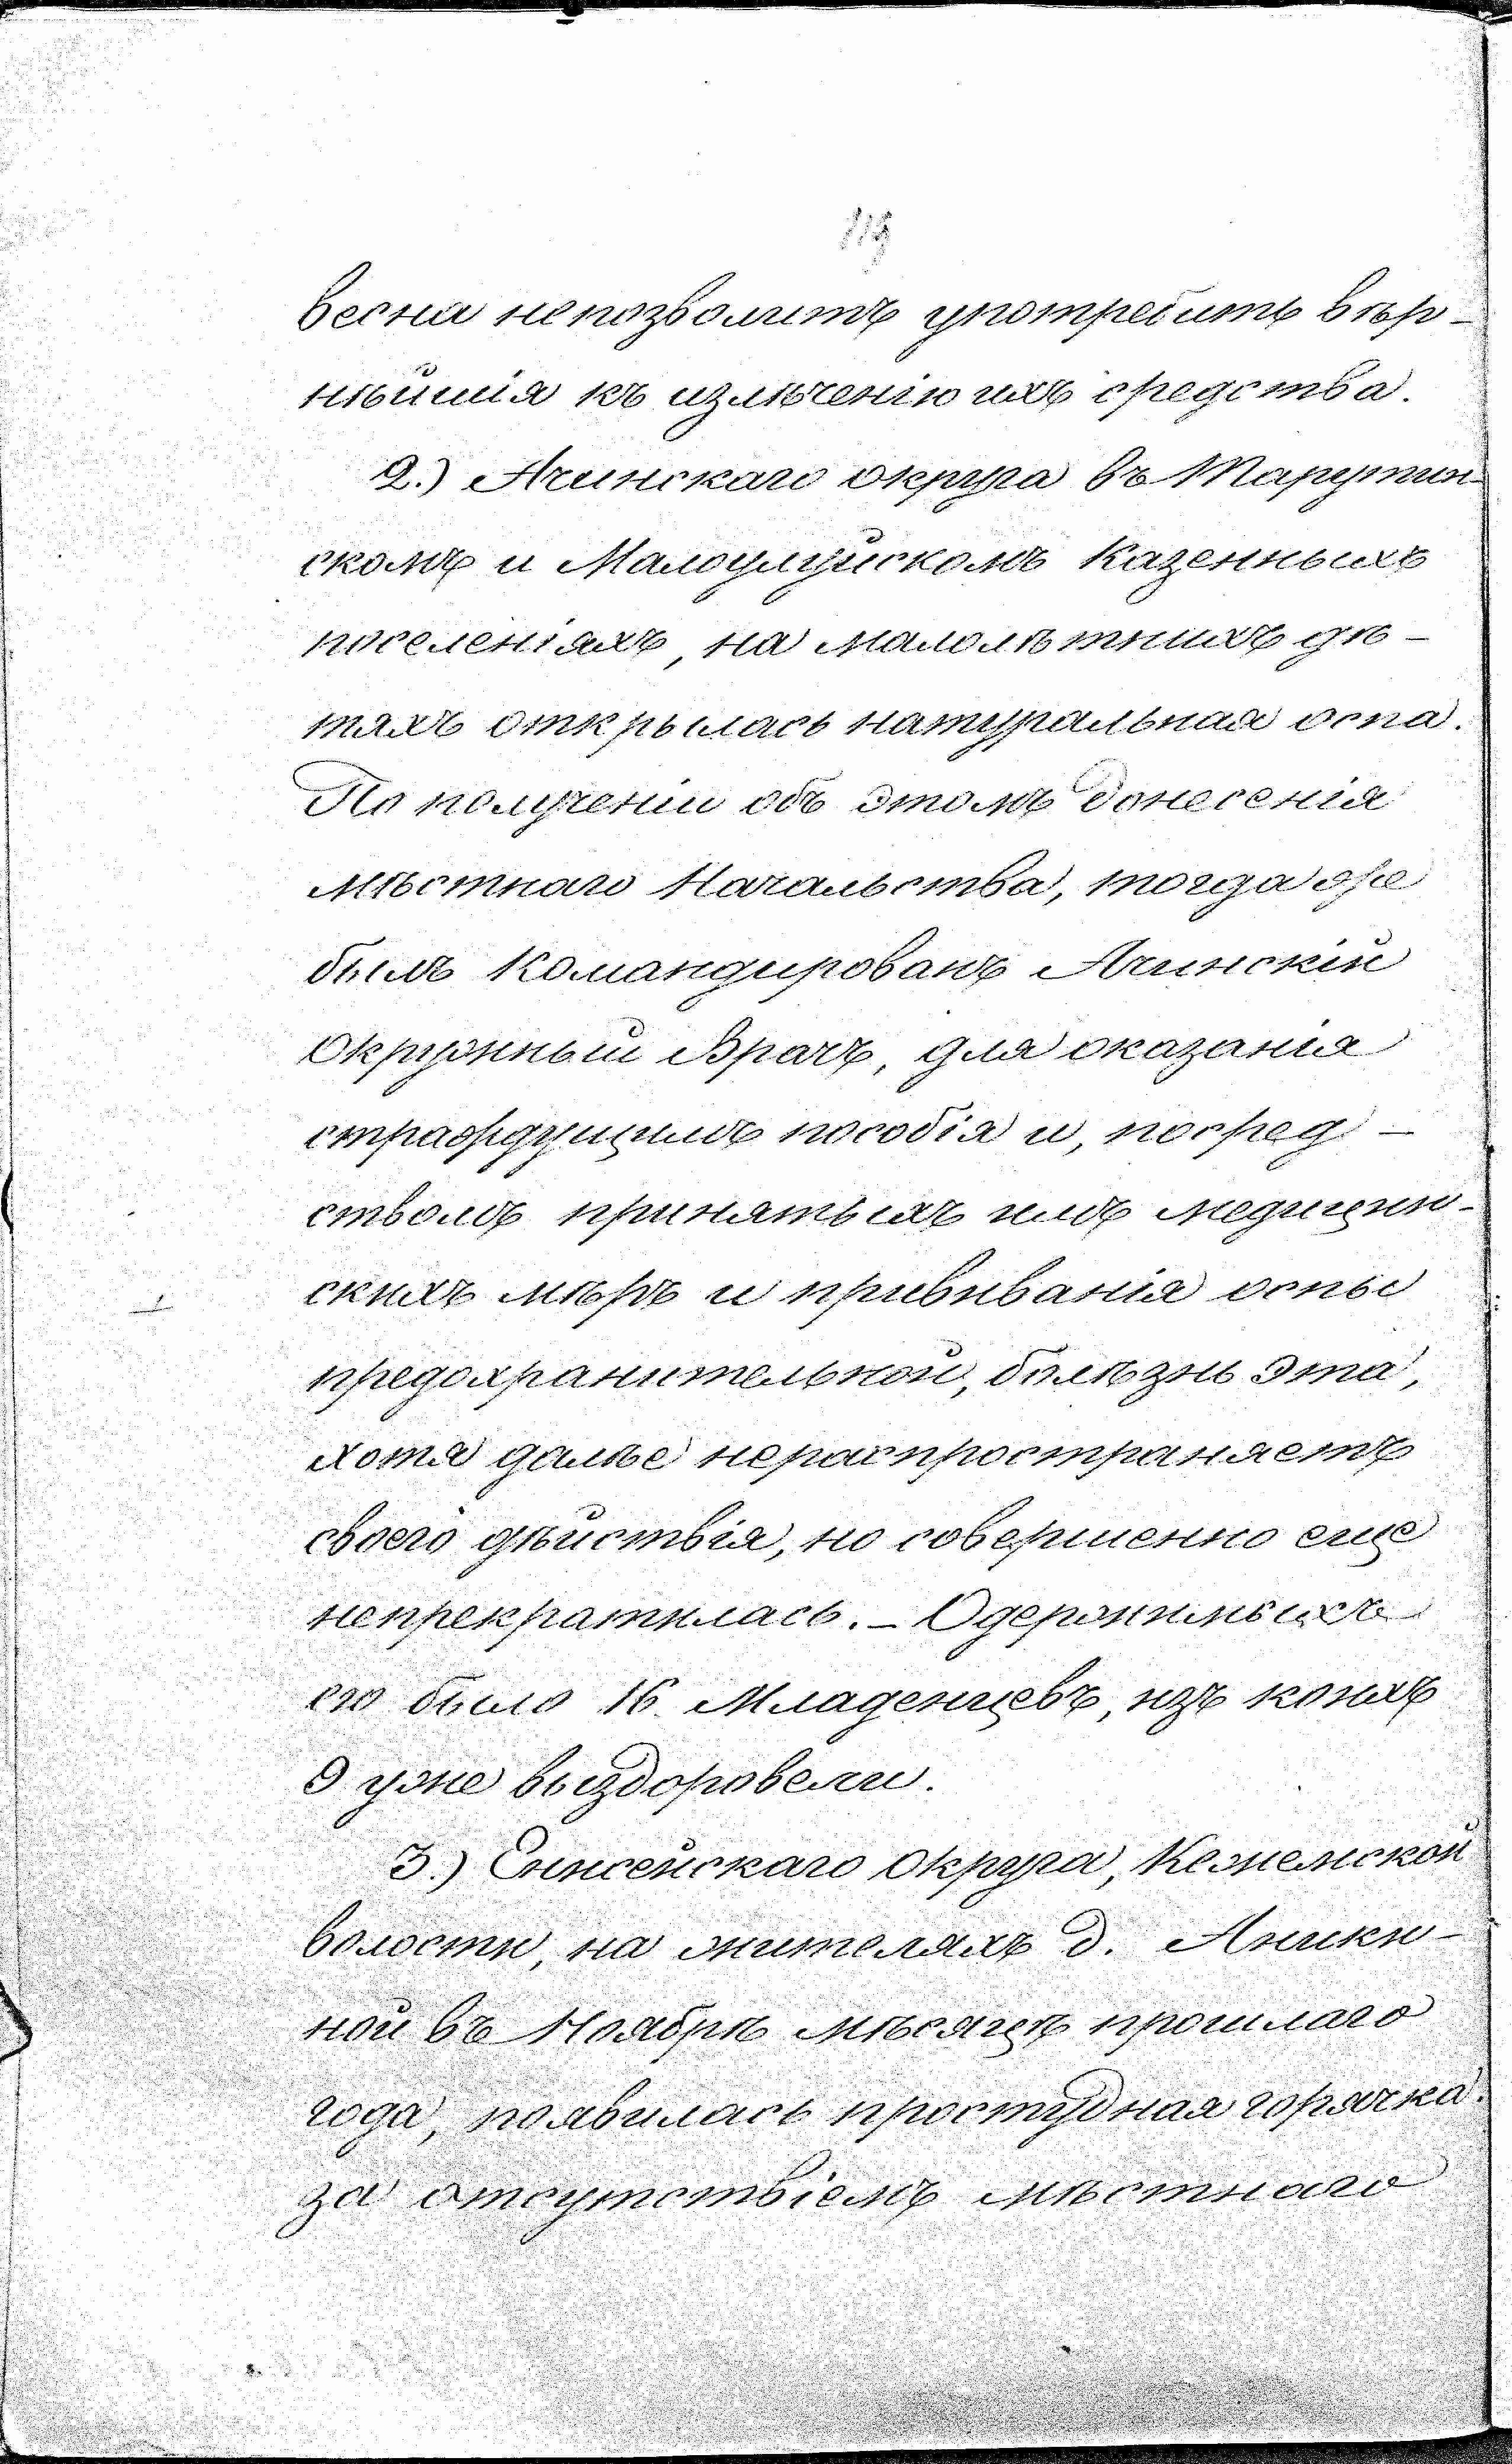 весна непозволитъ употребить вѣр-
нѣйшія къ излѣченію ихъ средства.
2.) Ачинскаго округа въ Тарутин-
скомъ и Малоулуйскомъ Казенныхъ
поселеніяхъ, на малолѣтнихъ дѣ-
тяхъ открылась натуральная оспа.
По полученіи объ этомъ донесенія
мѣстнаго Начальства, тогда же
былъ командированъ Ачинскій
Окружный Врачъ, для оказанія
страждущимъ пособія и, посред-
ствомъ принятыхъ имъ медицин-
скихъ мѣръ и прививанія оспы
предохранительной, болѣзнь эта,
хотя далѣе нераспространяетъ
своего дѣйствія, но совершенно еще
непрекратилась. - Одержимыхъ
ею было 16 Младенцевъ, изъ коихъ
9 уже выздоровели.
3.) Енисейскаго Округа, Кежемской
волости, на жителяхъ д. Аники-
ной въ Ноябрѣ мѣсяцѣ прошлаго
года, появилась простудная горячка.
за отсутствіемъ мѣстнаго